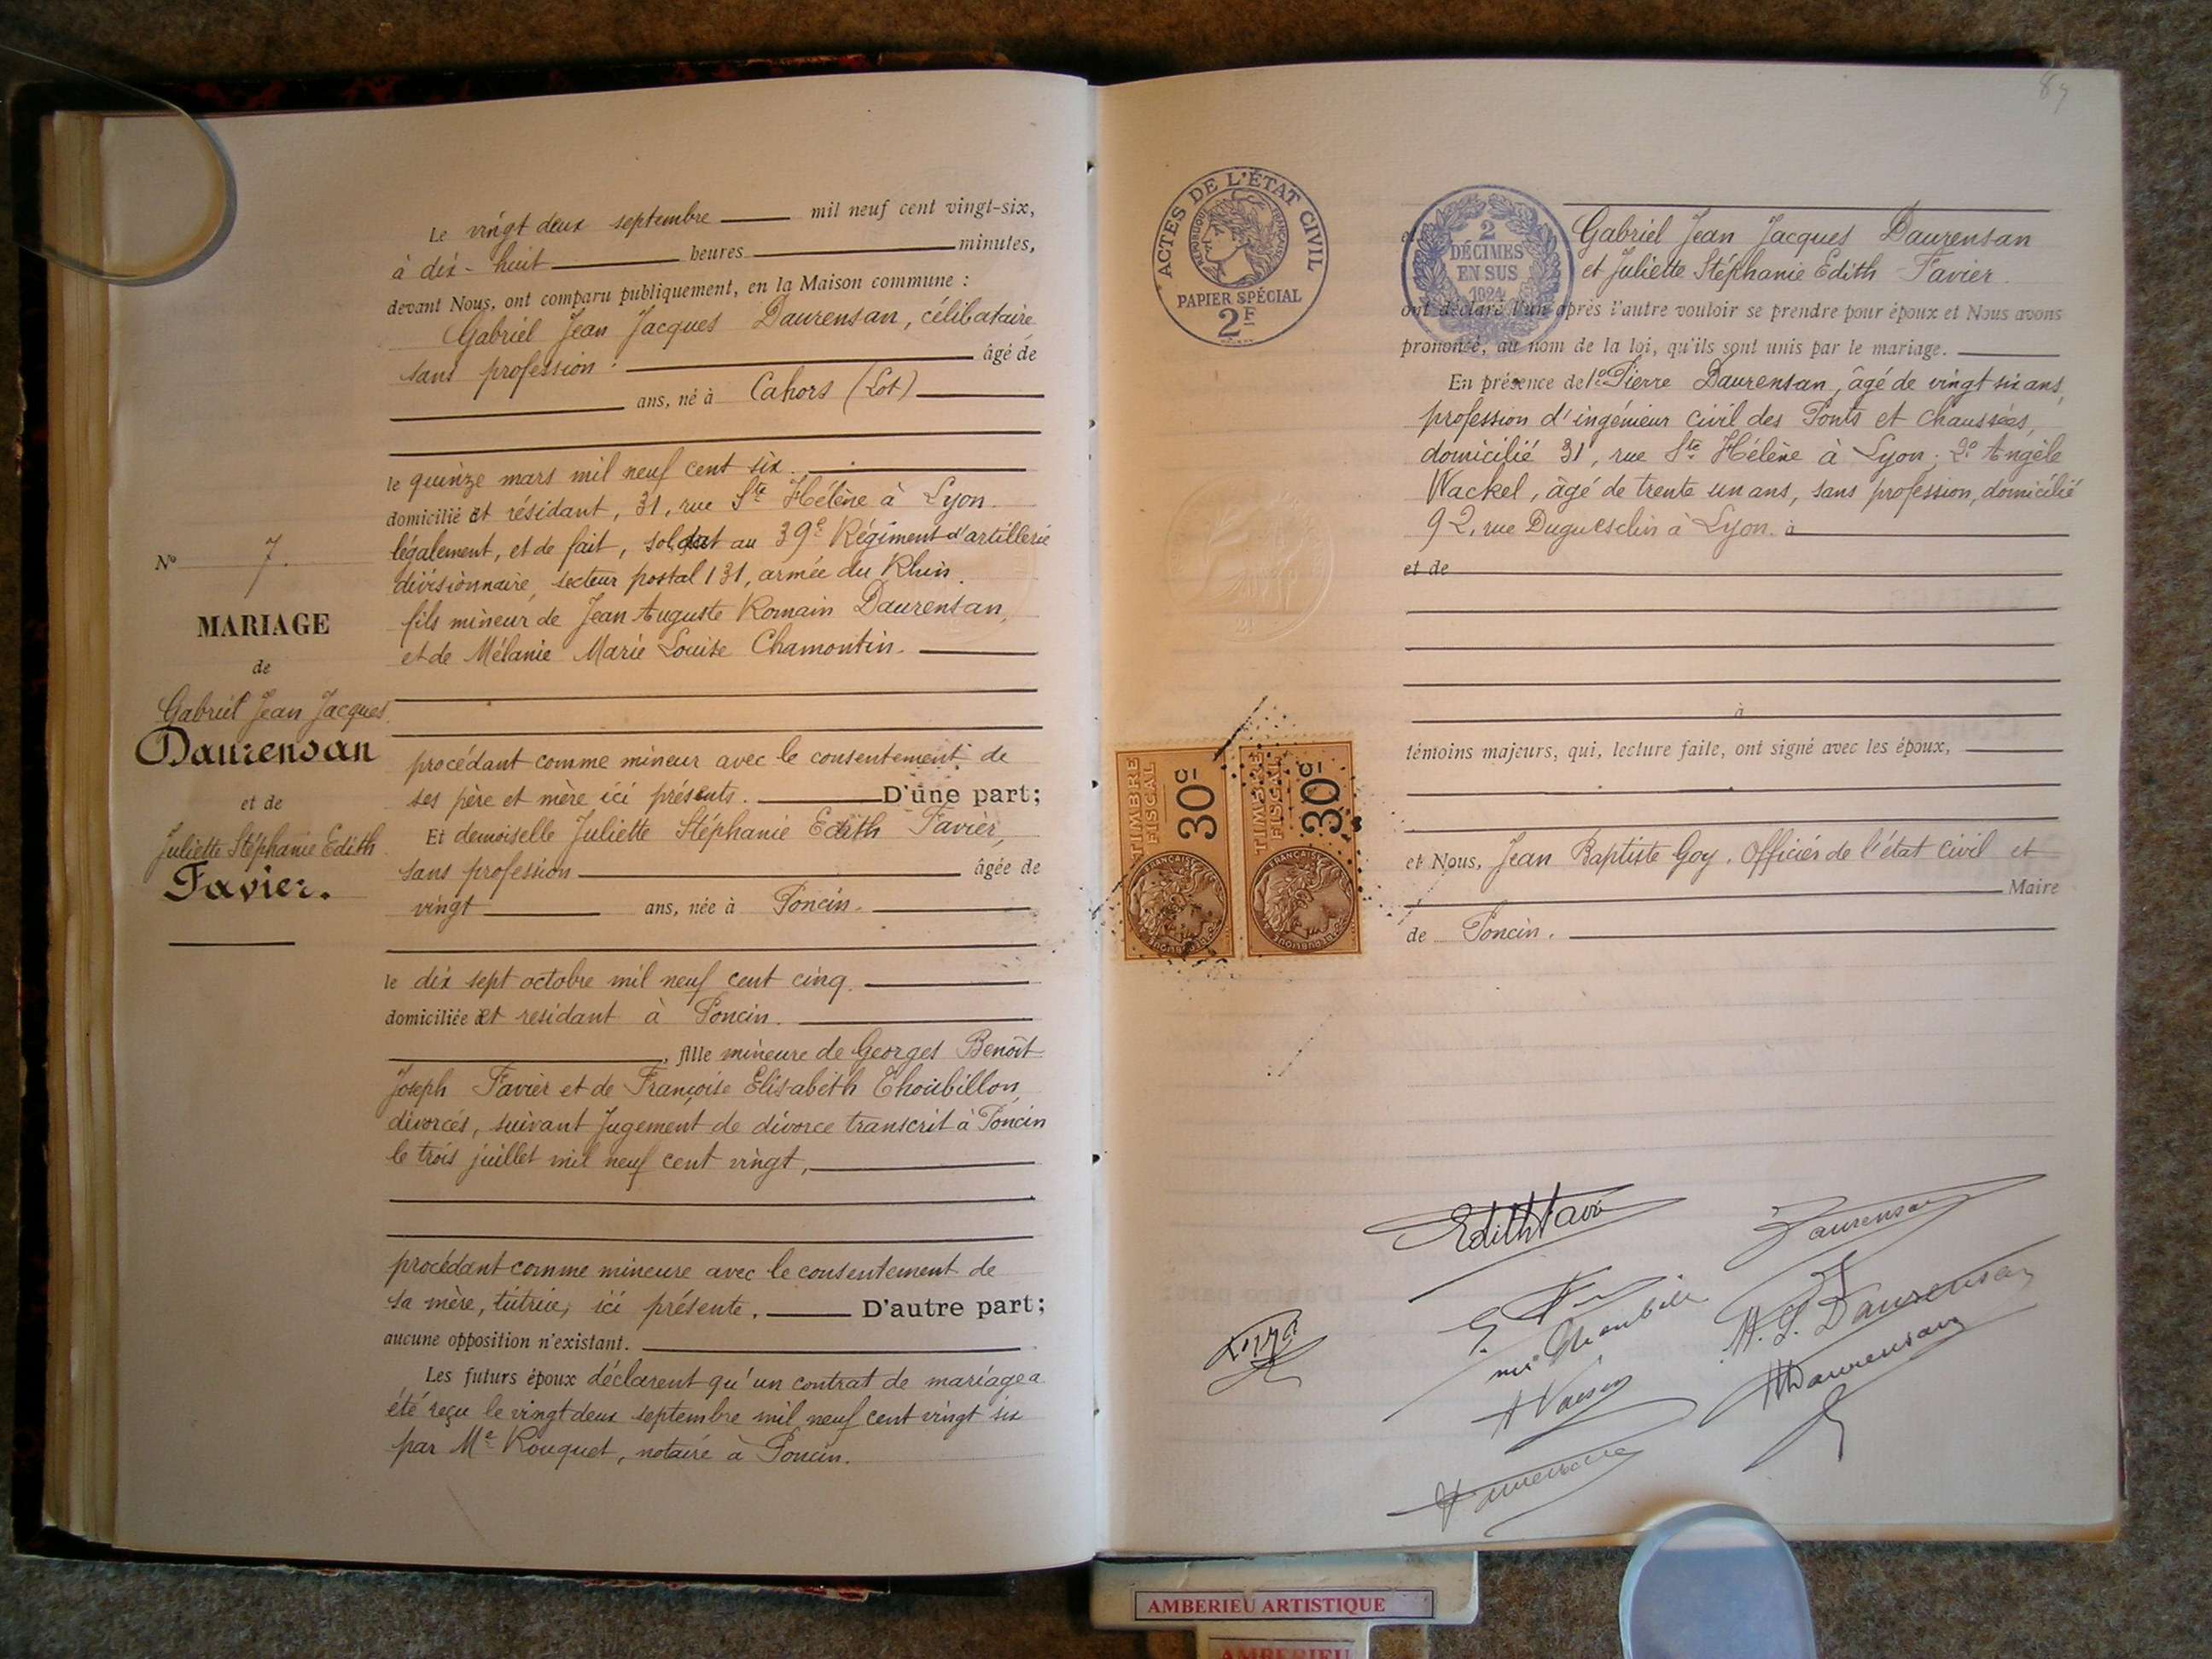 Nº 7.
MARIAGE
de
Gabriel Jean Jacques
Daurensan
et de
Juliette Stéphanie Edith
Favier.
Le vingt deux septembre mil neuf cent vingt-six,
à dix-huit heures minutes,
devant Nous, ont comparu publiquement, en la Maison commune :
Gabriel Jean Jacques Daurensan, célibataire
sans profession. âgé de
ans, né à Cahors (Lot)
le quinze mars mil neuf cent six.
domicilié et résidant, 31, rue Ste Hélène à Lyon.
légalement, et de fait, soldat au 39e Régiment d'artillerie
divisionnaire, secteur postal 131, armée du Rhin.
fils mineur de Jean Auguste Romain Daurensan,
et de Mélanie Marie Louise Chamontin.
procédant comme mineur avec le consentement de
ses père et mère ici présents. D'une part;
Et demoiselle Juliette Stéphanie Edith Favier,
sans profession âgée de
vingt ans, née à Poncin.
le dix sept octobre mil neuf cent cinq.
domiciliée et residant à Poncin.
, fille mineure de Georges Benoît
Joseph Favier et de Françoise Elisabeth Choubillon,
divorcés, suivant Jugement de divorce transcrit à Poncin
le trois juillet mil neuf cent vingt,
procédant comme mineure avec le consentement de
sa mère, tutrice, ici présente. D'autre part;
aucune opposition n'existant.
Les futurs époux déclarent qu'un contrat de mariage a
été reçu le vingt deux septembre mil neuf cent vingt six
par Me Rouquet, notaire à Poncin.
ACTES DE L'ÉTAT CIVIL
RÉPUBLIQUE FRANÇAISE
PAPIER SPÉCIAL
2F
2
DÉCIMES
EN SUS
1924
Gabriel Jean Jacques Daurensan
et Juliette Stéphanie Edith Favier.
ont déclaré l'un après l'autre vouloir se prendre pour époux et Nous avons
prononcé, au nom de la loi, qu'ils sont unis par le mariage.
En présence de 1º Pierre Daurensan, âgé de vingt six ans,
profession d'ingénieur civil des Ponts et Chaussées,
domicilié 31, rue Ste Hélène à Lyon; 2º Angèle
Wackel, âgé de trente un ans, sans profession, domicilié
92, rue Duguesclin à Lyon. à
et de
à
témoins majeurs, qui, lecture faite, ont signé avec les époux,
et Nous, Jean Baptiste Goy, Officier de l'état civil et
Maire
de Poncin.
TIMBRE FISCAL 30c
TIMBRE FISCAL 30c
Edith Favi
Daurensan
M. L. Daurensan
Daurensan
AMBERIEU ARTISTIQUE
AMBERIEU